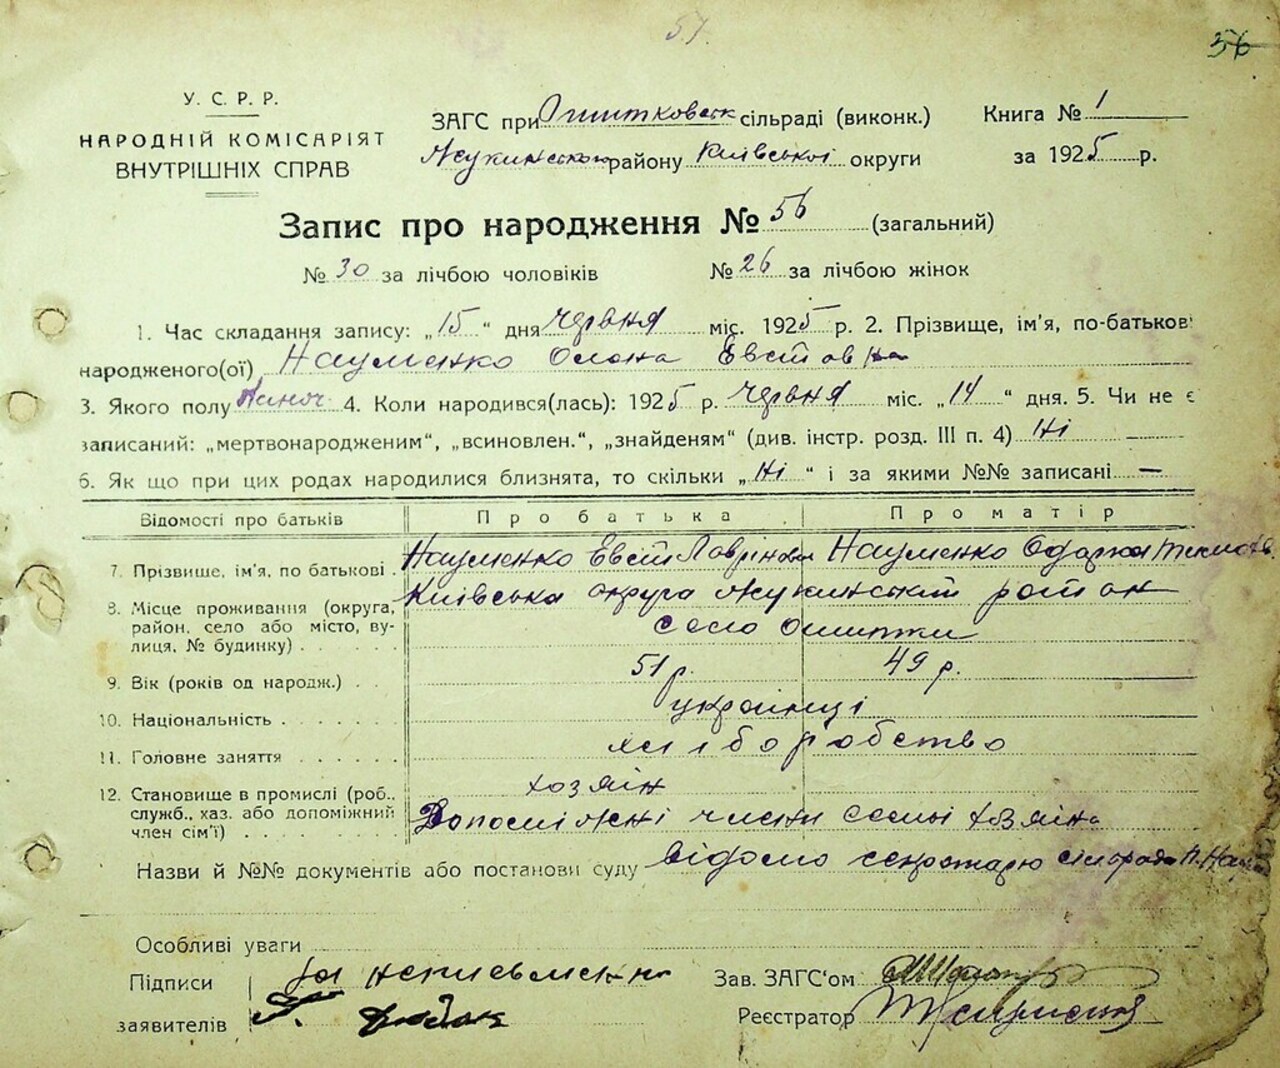 57.
56
У. С. Р. Р.
НАРОДНІЙ КОМІСАРІЯТ
ВНУТРІШНІХ СПРАВ
ЗАГС при сільраді (виконк.) Книга № 1
Жукинського району Київської округи за 1925 р.
Запис про народження № 56 (загальний)
№ 30 за лічбою чоловіків № 26 за лічбою жінок
1. Час складання запису: „15“ дня червня міс. 1925 р. 2. Прізвище, ім'я, по-батькові
народженого(ої) Науменко Олена Евстовна
3. Якого полу жіноч 4. Коли народився(лась): 1925 р. червня міс. „14“ дня. 5. Чи не є
записаний: „мертвонародженим“, „всиновлен.“, „знайденям“ (див. інстр. розд. III п. 4) Ні —
6. Як що при цих родах народилися близнята, то скільки „Ні“ і за якими №№ записані —
Відомості про батьків Про батька Про матір
7. Прізвише, ім'я, по батькові Науменко Евст Лаврінов Науменко Одарка
8. Місце проживання (округа, Київська округа Жукинський район
район, село або місто, ву- село
лиця, № будинку)
9. Вік (років од народж.) 51 р. 49 р.
10. Національність українці
11. Головне заняття хліборобство
12. Становище в промислі (роб., хозяїн
служб., хаз. або допоміжний Допоміжні члени семьі хозяїна
член сім'ї)
Назви й №№ документів або постанови суду Відомо секретарю сільради
Особливі уваги
Підписи за неписьменни
заявителів
Зав. ЗАГС'ом
Реєстратор